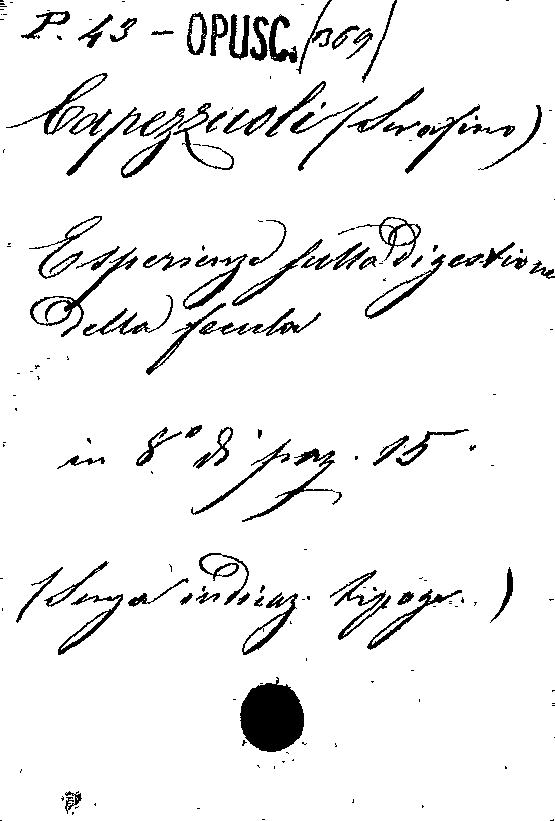 P. 43 - OPUSC. (1369)
Capezzuoli (Serafino)
Esperienze sulla Digestione
Della fecula
in 8° di pag. 15.
(Senza indicaz. tipogr.)